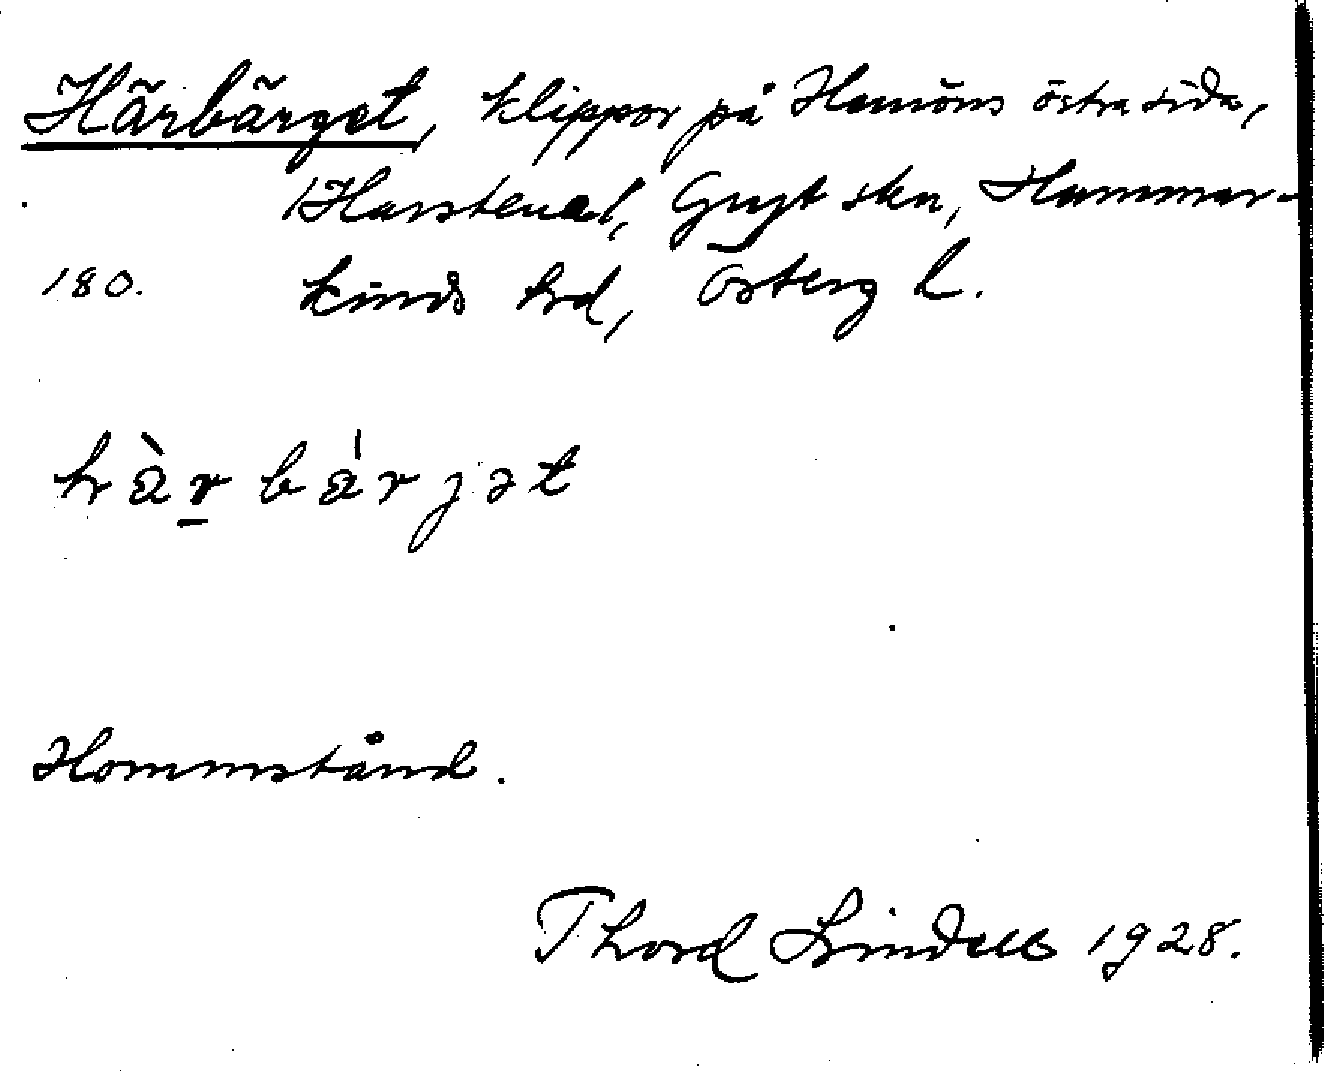 Härbärget, klippor på Hamöns östra sida,
Harstena, Gryt skn, Hammar-
180. kinds hrd, Österg l.
hàr bár jət
Hommstånd.
Thord Lindell 1928.